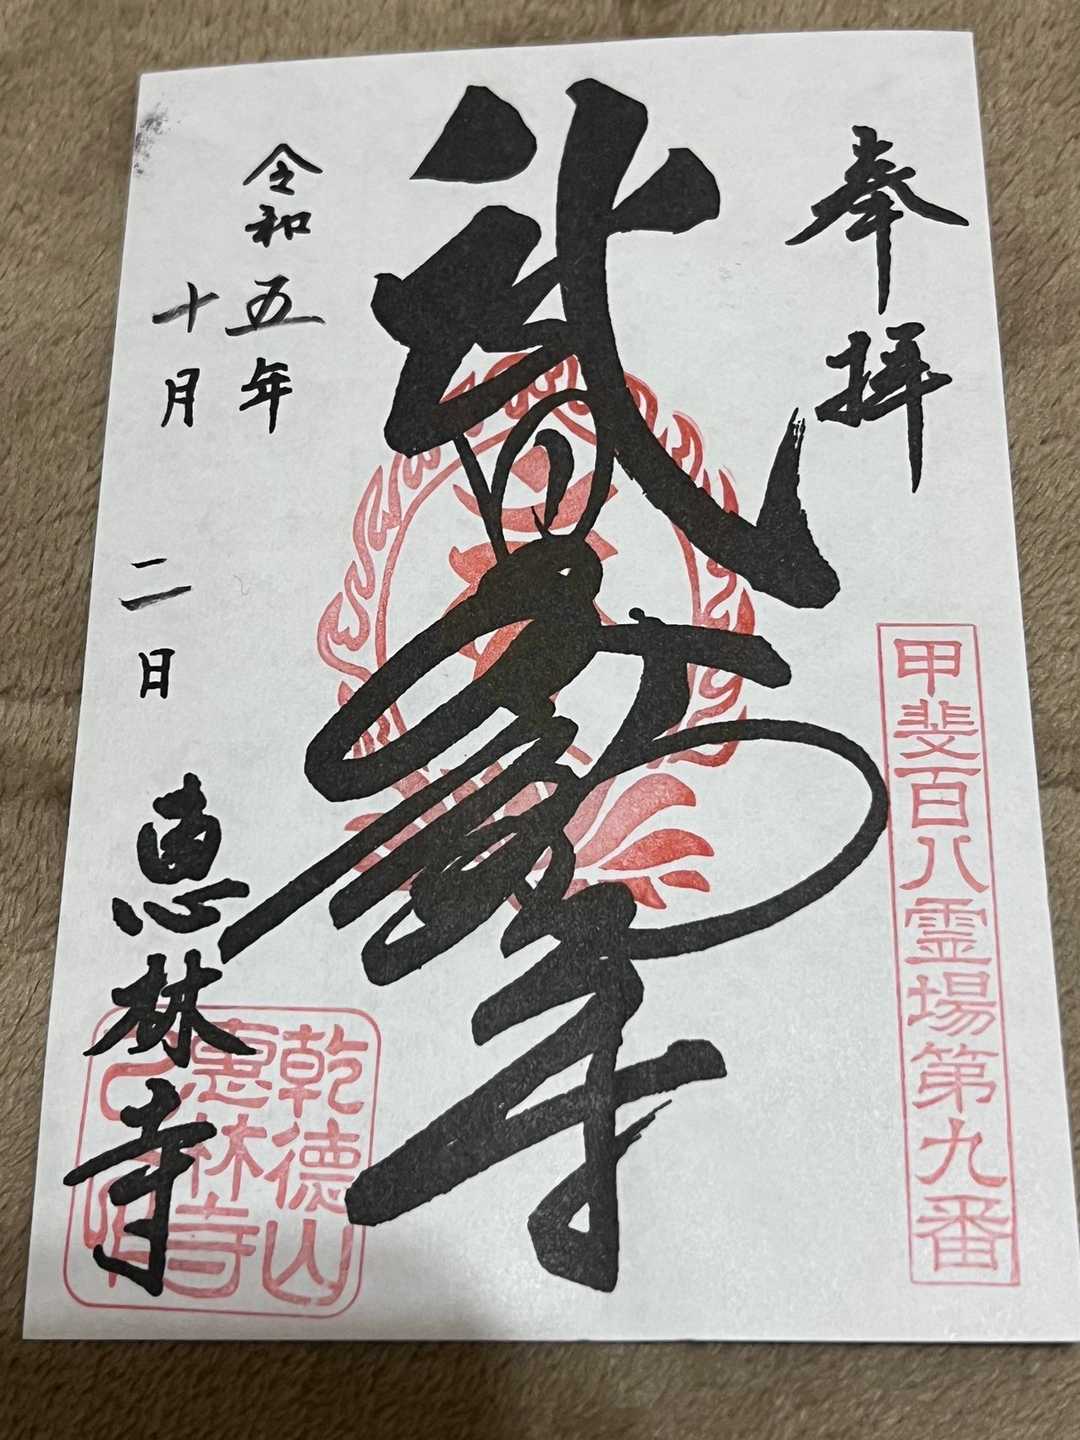 奉拝
甲斐百八霊場第九番
武田不動尊
令和五年
十月二日
恵林寺
乾徳山
恵林寺